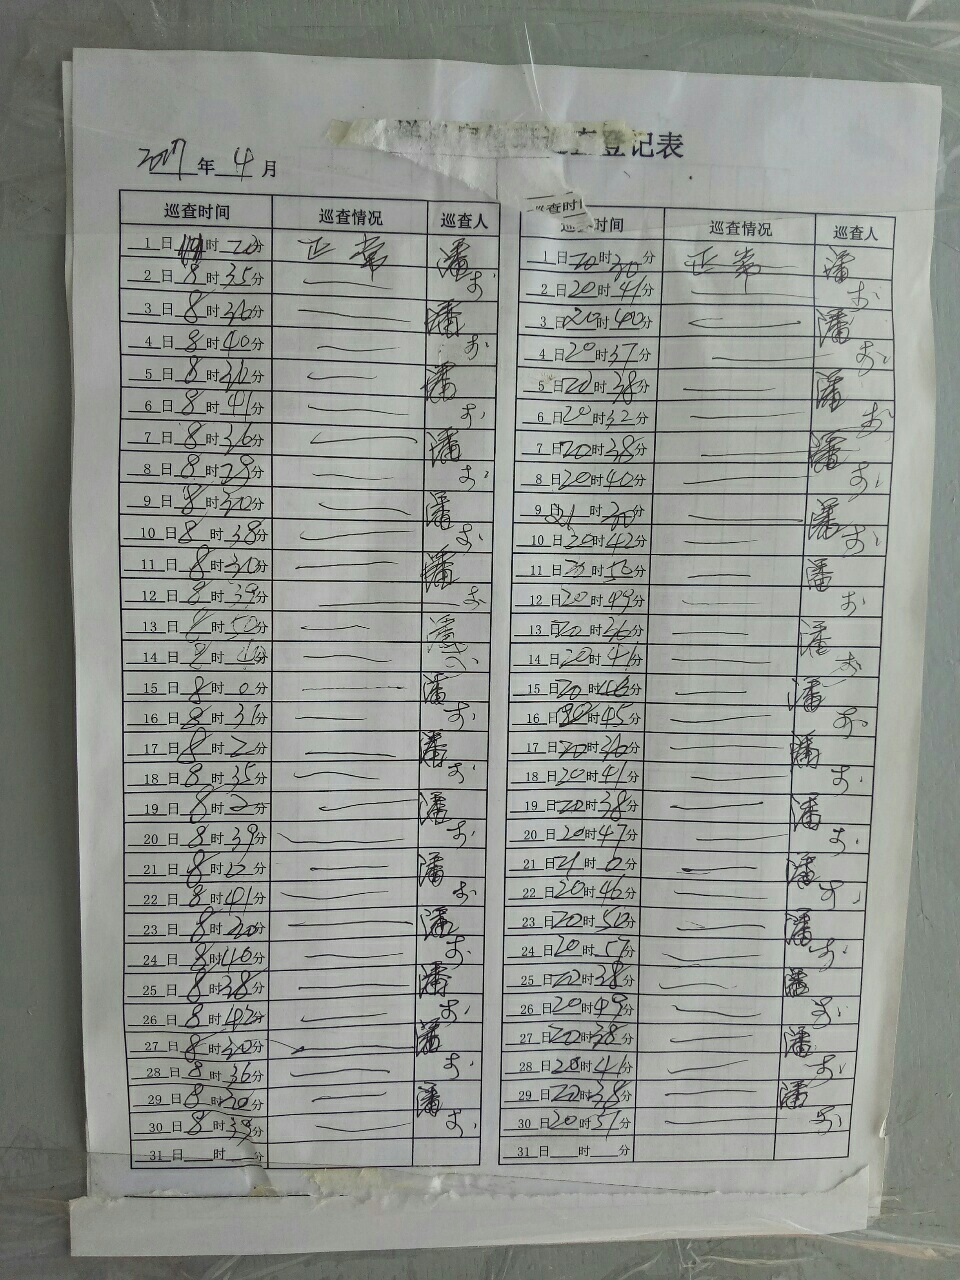 登记表
2017年4月
巡查时间 巡查情况 巡查人
1日 时20分 正常 潘
2日8时35分
3日8时36分 潘
4日8时40分
5日8时30分 潘
6日8时41分
7日8时36分 潘
8日8时28分
9日8时30分 潘
10日8时38分
11日8时30分 潘
12日8时39分
13日8时50分
14日8时40分
15日8时0分 潘
16日8时31分
17日8时2分 潘
18日8时35分
19日8时2分 潘
20日8时39分
21日8时 分 潘
22日8时41分
23日8时20分 潘
24日8时40分
25日8时38分 潘
26日8时42分
27日8时30分 潘
28日8时36分
29日8时30分 潘
30日8时39分
31日 时 分
巡查时间
时间 巡查情况 巡查人
1日20时30分 正常 潘
2日20时41分
3日20时40分 潘
4日20时37分
5日20时38分 潘
6日20时32分
7日20时38分 潘
8日20时40分
9日21 30分 潘
10日20时42分
11日20时50分 潘
12日20时49分
13日20时36分 潘
14日20时41分
15日20时46分 潘
16日20时45分
17日20时36分 潘
18日20时41分
19日20时38分 潘
20日20时47分
21日21时0分 潘
22日20时46分
23日20时50分 潘
24日20时57分
25日20时38分 潘
26日20时49分
27日20时38分 潘
28日20时41分
29日20时38分 潘
30日20时37分
31日 时 分